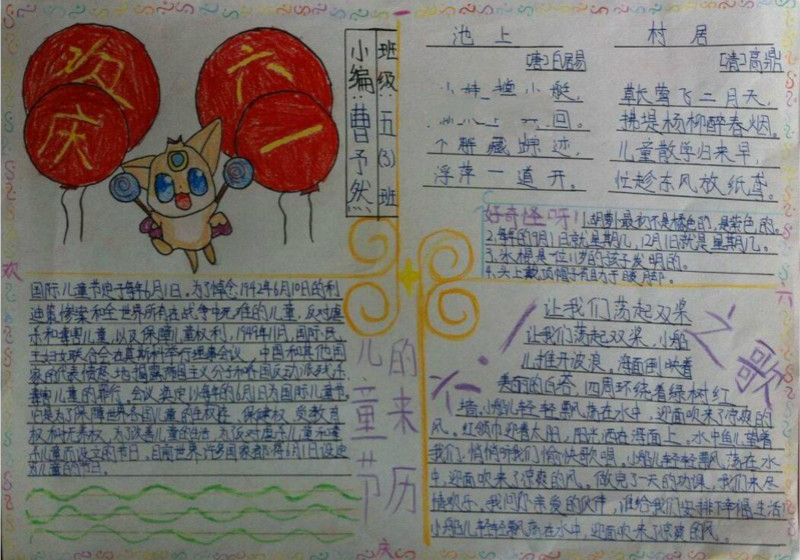 欢庆
六一
班级 五(3)班
小编:曹予然
池上
[唐]白居易
小 艇,
回。
藏踪迹,
浮萍一道开。
村居
[清]高鼎
草长莺飞二月天,
拂堤杨柳醉春烟。
儿童散学归来早,
忙趁东风放纸鸢。
好奇怪呀!1.胡萝卜最初不是橘色的,是紫色的。
2.每年的9月1日就是星期几,12月1日就是星期几。
3.冰棍是一位11岁的孩子发明的。
4.头上戴顶帽子有助于暖脚。
国际儿童节定于每年6月1日。为了悼念1942年6月10日的利
迪策惨案和全世界所有在战争中死难的儿童,反对虐
杀和毒害儿童,以及保障儿童权利,1949年11月,国际民
主妇女联合会在莫斯科举行理事会议,中国和其他国
家的代表愤怒地揭露帝国主义分子和各国反动派残杀
毒害儿童的罪行。会议决定以每年的6月1日为国际儿童节。
它是为了保障世界各国儿童的生存权、保健权、受教育
权和抚养权,为了改善儿童的生活,为了反对虐杀儿童和毒
杀儿童而设立的节日。目前世界许多国家都将6月1日设定
为儿童的节日。
儿童节
的来历
六·一之歌
让我们荡起双桨
让我们荡起双桨,小船
儿推开波浪。海面倒映着
美丽的白塔,四周环绕着绿树红
墙。小船儿轻轻飘荡在水中,迎面吹来了凉爽的
风。红领巾迎着太阳,阳光洒在海面上,水中鱼儿望着
我们,悄悄听我们愉快歌唱。小船儿轻轻飘荡在水
中,迎面吹来了凉爽的风。做完了一天的功课,我们来尽
情欢乐,我问你亲爱的伙伴,谁给我们安排下幸福生活?
小船儿轻轻飘荡在水中,迎面吹来了凉爽的风。
欢
六
庆